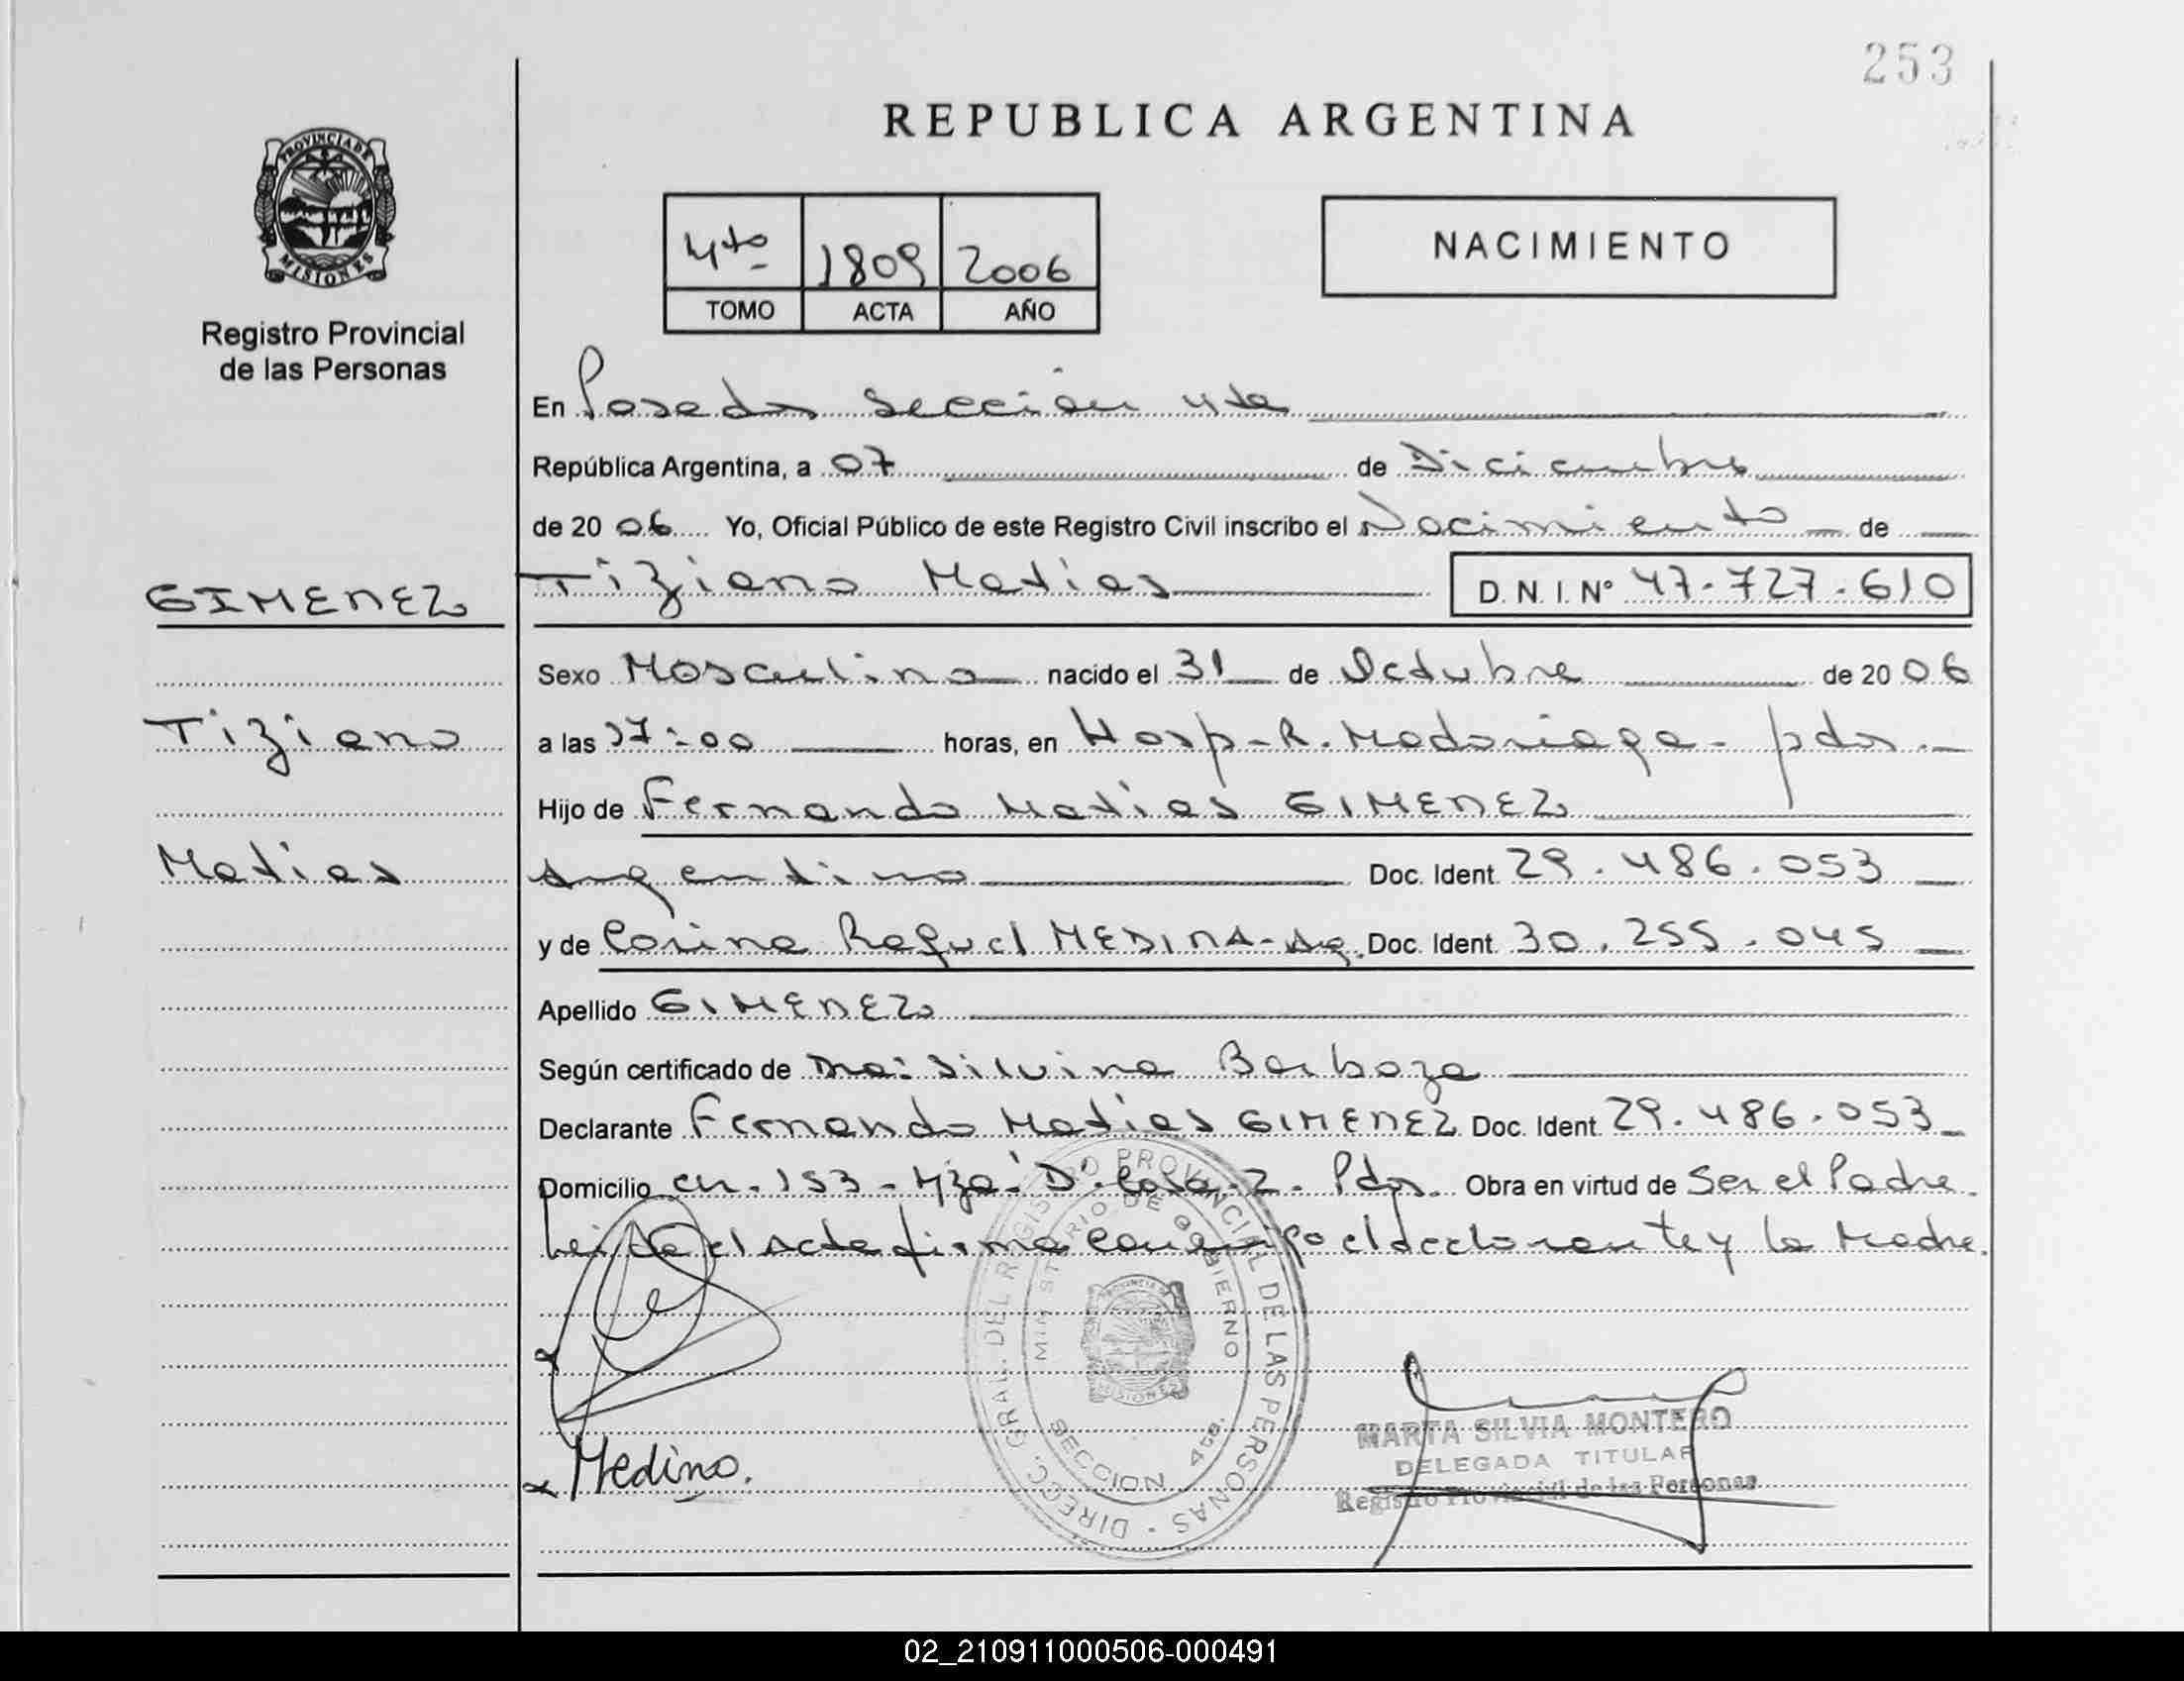 253
REPUBLICA ARGENTINA
PROVINCIA DE
MISIONES
Registro Provincial
de las Personas
4to 1809 2006
TOMO ACTA AÑO
NACIMIENTO
En Posadas Sección 4ta
República Argentina, a 07 de Diciembre
de 20 06 Yo, Oficial Público de este Registro Civil inscribo el Nacimiento de
GIMENEZ
Tiziano Matias D.N.I. Nº 47.727.610
Sexo Masculino nacido el 31 de Octubre de 20 06
Tiziano
a las 17:00 horas, en Hosp. R. Madariaga - pdas.
Hijo de Fernando Matias GIMENEZ
Matias
Argentino Doc. Ident. 29.486.053
y de Corina Raquel MEDINA - Arg. Doc. Ident. 30.255.045
Apellido GIMENEZ
Según certificado de Dra: Silvina Barboza
Declarante Fernando Matias GIMENEZ Doc. Ident. 29.486.053
Domicilio CH. 153 - Mza. "D" Casa 2 - Pdas. Obra en virtud de Ser el Padre.
Leída el Acta firma conmigo el declarante y la Madre.
DIRECC. GRAL. DEL REGISTRO PROVINCIAL DE LAS PERSONAS
MINISTERIO DE GOBIERNO
SECCION 4ta.
Medina.
MARTA SILVIA MONTERO
DELEGADA TITULAR
Registro Provincial de las Personas
02_210911000506-000491